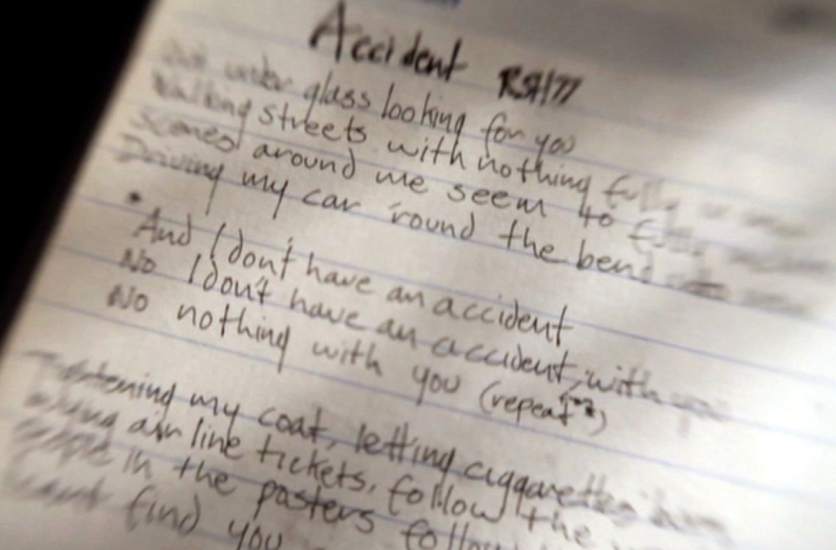 Accident RSH77
under glass looking for you
Walking streets with nothing
Scenes around me seem to
Driving my car 'round the bend
And I don't have an accident
No I don't have an accident, with you
No nothing with you (repeat
Tightening my coat, letting ciggarettes burn
air line tickets, follow the
people in the posters follow
can't find you